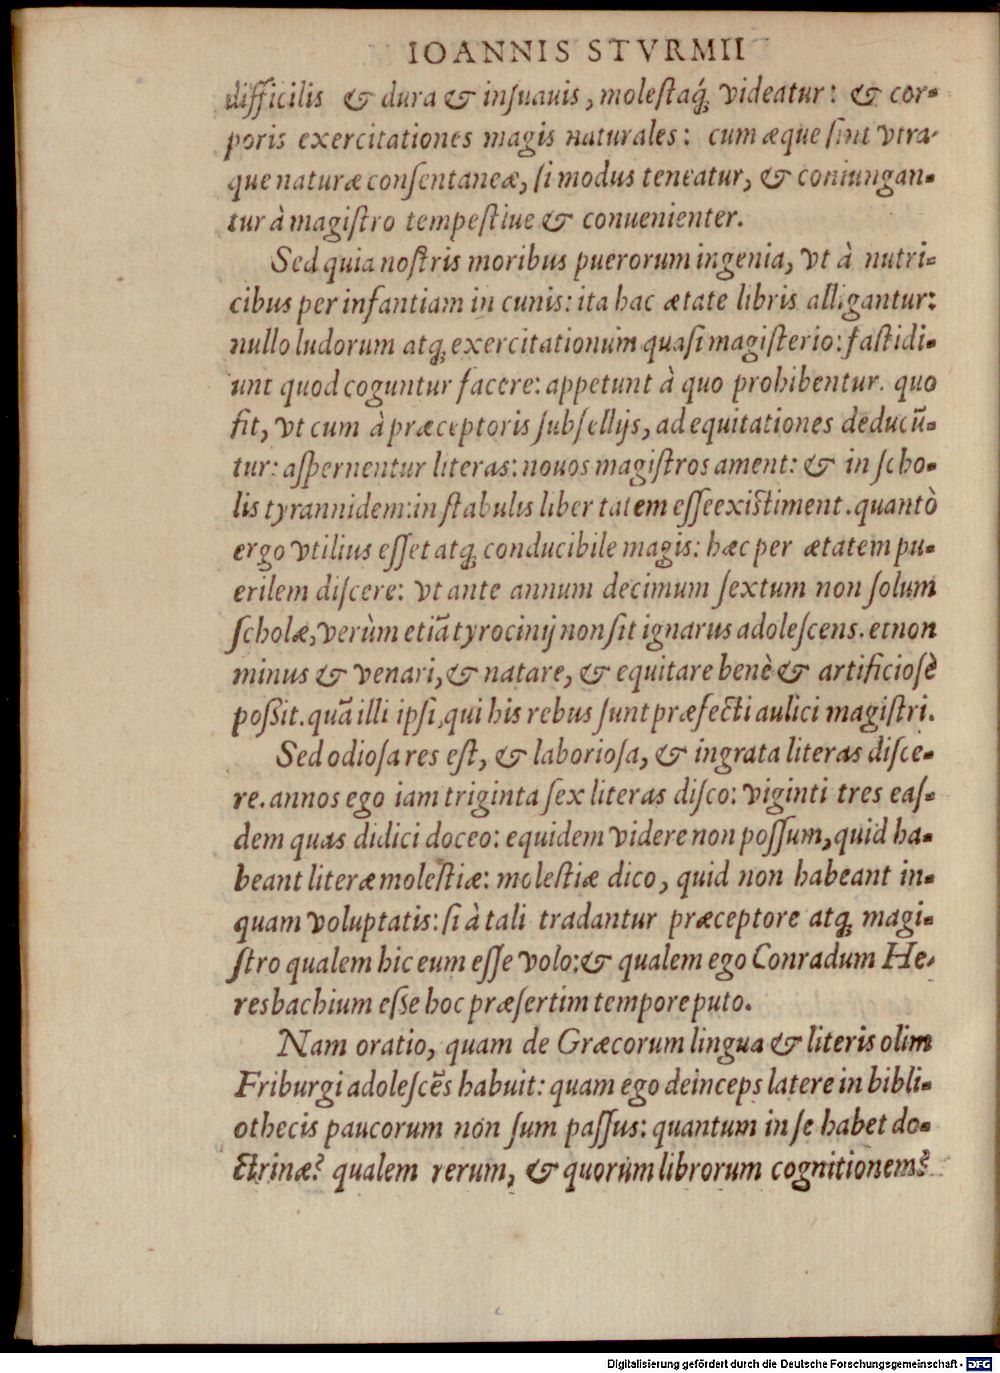 IOANNIS STVRMII
difficilis & dura & insuauis, molestaq́; videatur: & cor-
poris exercitationes magis naturales: cum æque sint vtra-
que naturæ consentaneæ, si modus teneatur, & coniungan-
tur à magistro tempestiue & conuenienter.
Sed quia nostris moribus puerorum ingenia, vt à nutri-
cibus per infantiam in cunis: ita hac ætate libris alligantur:
nullo ludorum atq; exercitationum quasi magisterio: fastidi-
unt quod coguntur facere: appetunt à quo prohibentur. quo
fit, vt cum à præceptoris subsellijs, ad equitationes deducũ-
tur: aspernentur literas: nouos magistros ament: & in scho-
lis tyrannidem: in stabulis libertatem esse existiment. quantò
ergo vtilius esset atq; conducibile magis: hæc per ætatem pu-
erilem discere: vt ante annum decimum sextum non solum
scholæ, verùm etiã tyrocinij non sit ignarus adolescens. et non
minus & venari, & natare, & equitare benè & artificiosè
possit. quã illi ipsi, qui his rebus sunt præfecti aulici magistri.
Sed odiosa res est, & laboriosa, & ingrata literas disce-
re. annos ego iam triginta sex literas disco: viginti tres eas-
dem quas didici doceo: equidem videre non possum, quid ha-
beant literæ molestiæ: molestiæ dico, quid non habeant in-
quam voluptatis: si à tali tradantur præceptore atq; magi-
stro qualem hic eum esse volo: & qualem ego Conradum He-
resbachium esse hoc præsertim tempore puto.
Nam oratio, quam de Græcorum lingua & literis olim
Friburgi adolescẽs habuit: quam ego deinceps latere in bibli-
othecis paucorum non sum passus: quantum in se habet do-
ctrinæ? qualem rerum, & quorum librorum cognitionem?
Digitalisierung gefördert durch die Deutsche Forschungsgemeinschaft - DFG